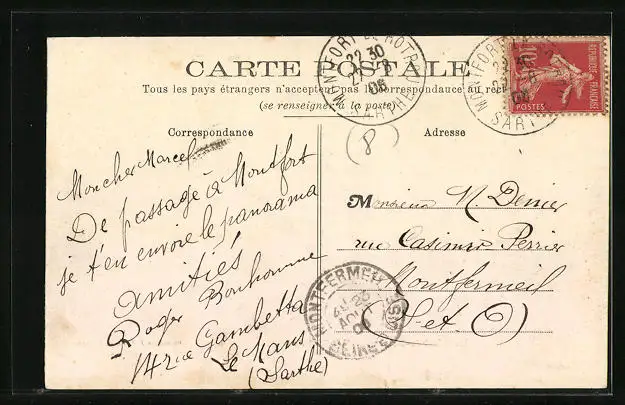 CARTE POSTALE
Tous les pays étrangers n'acceptent pas la correspondance au recto
(se renseigner à la poste)
Correspondance
Mon cher Marcel
De passage à Montfort
je t'en envoie le panorama
amitiés
Roger Bonhomme
14 rue Gambetta
Le Mans
(Sarthe)
Adresse
(8)
Monsieur M.
rue Casimir Perrier
Montfermeil
(S et O)
MONTFORT LE ROTROU
22 30
SARTHE
MONTFORT
SARTHE
10
POSTES
REPUBLIQUE FRANÇAISE
MONTFERMEIL
SEINE